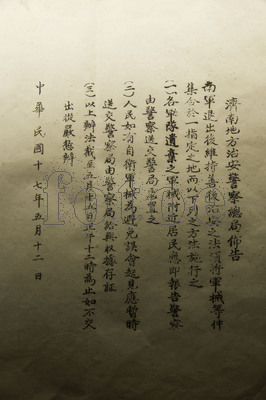 濟南地方治安警察總局佈告
南軍退出後維持善後治安之法須將軍械等件
集合於一指定之地而以下列之方法施行之
(一)各軍隊遺棄之軍械附近居民應即報告警察
由警察送交警局處置之
(二)人民如有自衛軍械為避免誤會起見應暫時
送交警察局由警局給與收據存証
(三)以上辦法截至五月十八日正午十二時為止如不交
出從嚴懲辦
中華民國十七年五月十二日